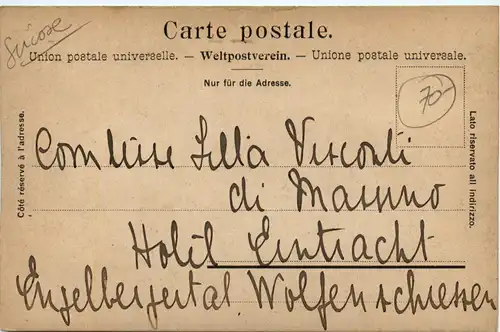 Carte postale.
Suisse
Union postale universelle. — Weltpostverein. — Unione postale universale.
Nur für die Adresse.
70-
Côté réservé à l'adresse.
Lato riservato all indirizzo.
Comtesse Lilla Visconti
di Massino
Hotel Eintracht
Engelbergertal. Wolfenschiessen